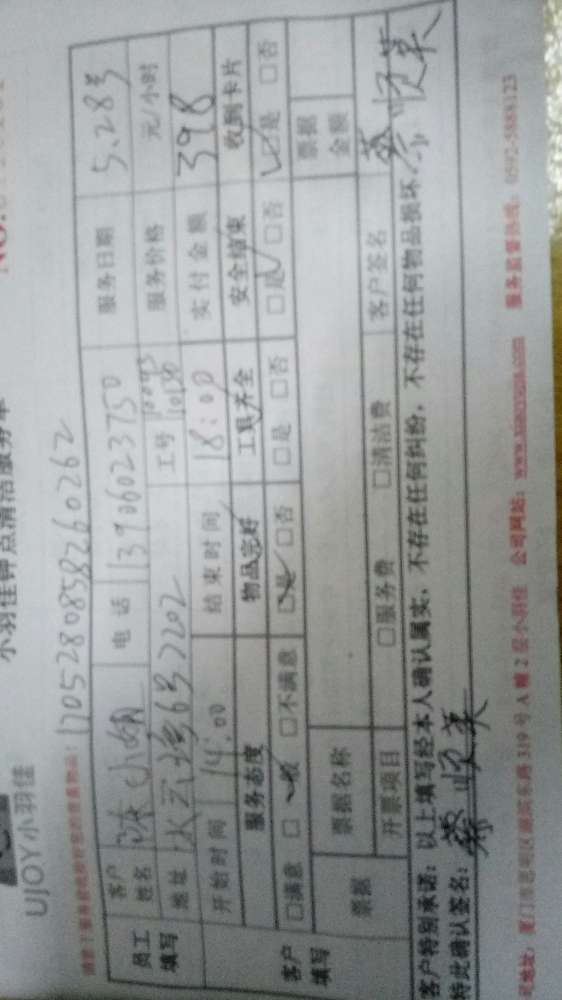 UJOY小羽佳
小羽佳钟点清洁服务单
NO.
1705280858260262
员工填写 客户姓名 陈小娟 电话 13906023750 服务日期 5.28号
地址 6号2202 工号 服务价格 元/小时
开始时间 14:00 结束时间 18:00 实付金额 398
客户填写 服务态度 物品完好 工具齐全 安全结束 收到卡片
□满意 □一般 □不满意 □是 □否 □是 □否 □是 □否 □是 □否
票据 票据名称 票据金额
开票项目 □服务费 □清洁费 客户签名 蔡顺英
客户特别承诺：以上填写经本人确认属实，不存在任何纠纷，不存在任何物品损坏，
特此确认签名：蔡顺英
司地址：厦门市思明区湖滨东路319号A幢2层小羽佳 公司网站： 服务监督热线：0592-5888123